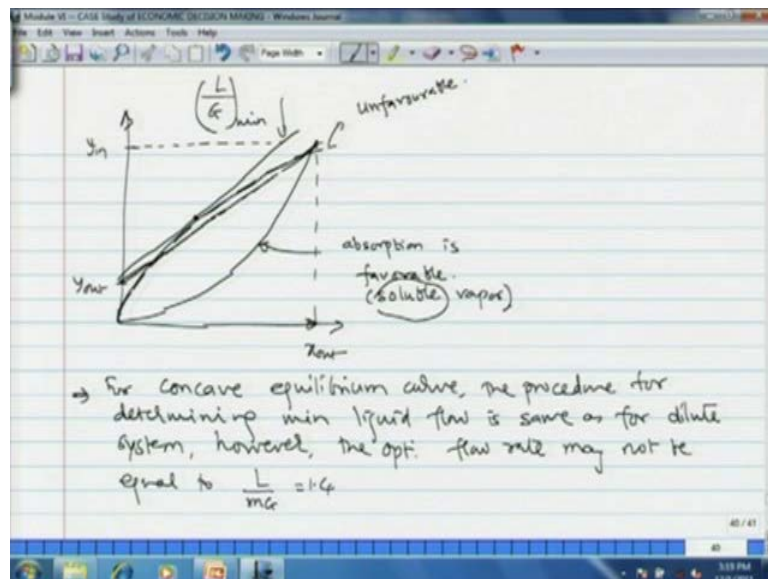 Module VI - CASE Study of ECONOMIC DECISION MAKING - Windows Journal
File Edit View Insert Actions Tools Help
Page Width
(L/G)min
unfavourable.
yin
absorption is
favorable.
(soluble vapor)
yout
xout
⇒ For concave equilibrium curve, the procedure for
determining min liquid flow is same as for dilute
system, however, the opt. flow rate may not be
equal to L/mG = 1.4
40 / 41
40
5:19 PM